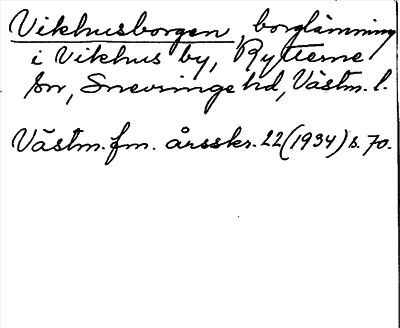 Vikhusborgen, borglämning
i Vikhus by, Rytterne
sn, Snevringe hd, Västm. l.
Västm. fm. årsskr. 22 (1934) s. 70.